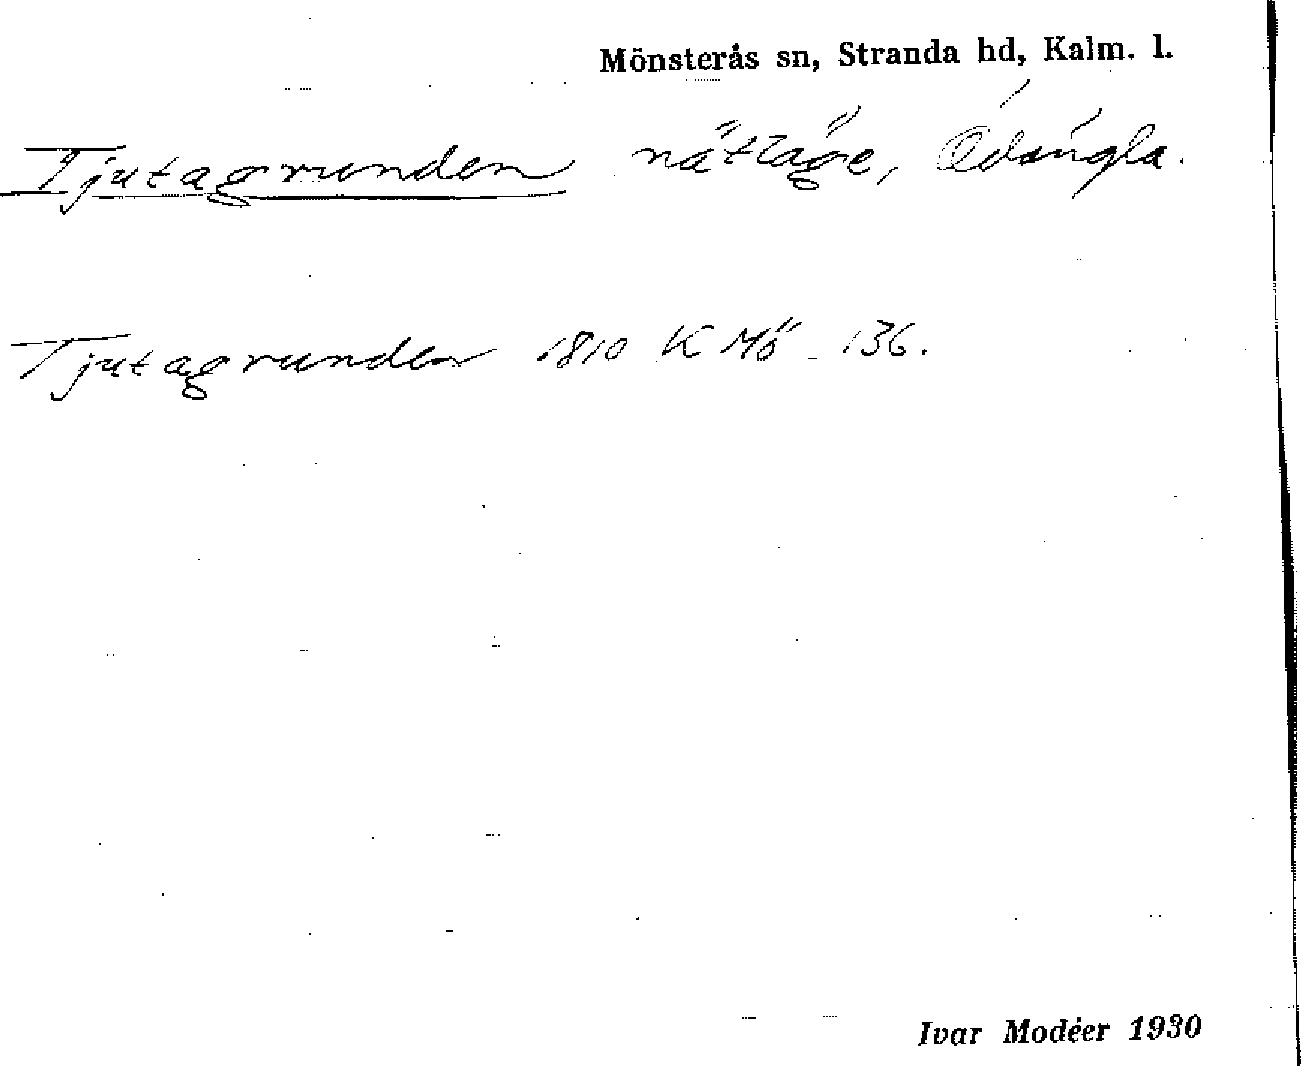 Mönsterås sn, Stranda hd, Kalm. l.
Tjutagrunden nätläge, Ödängla.
Tjutagrunden 1810 K Mö 136.
Ivar Modéer 1930